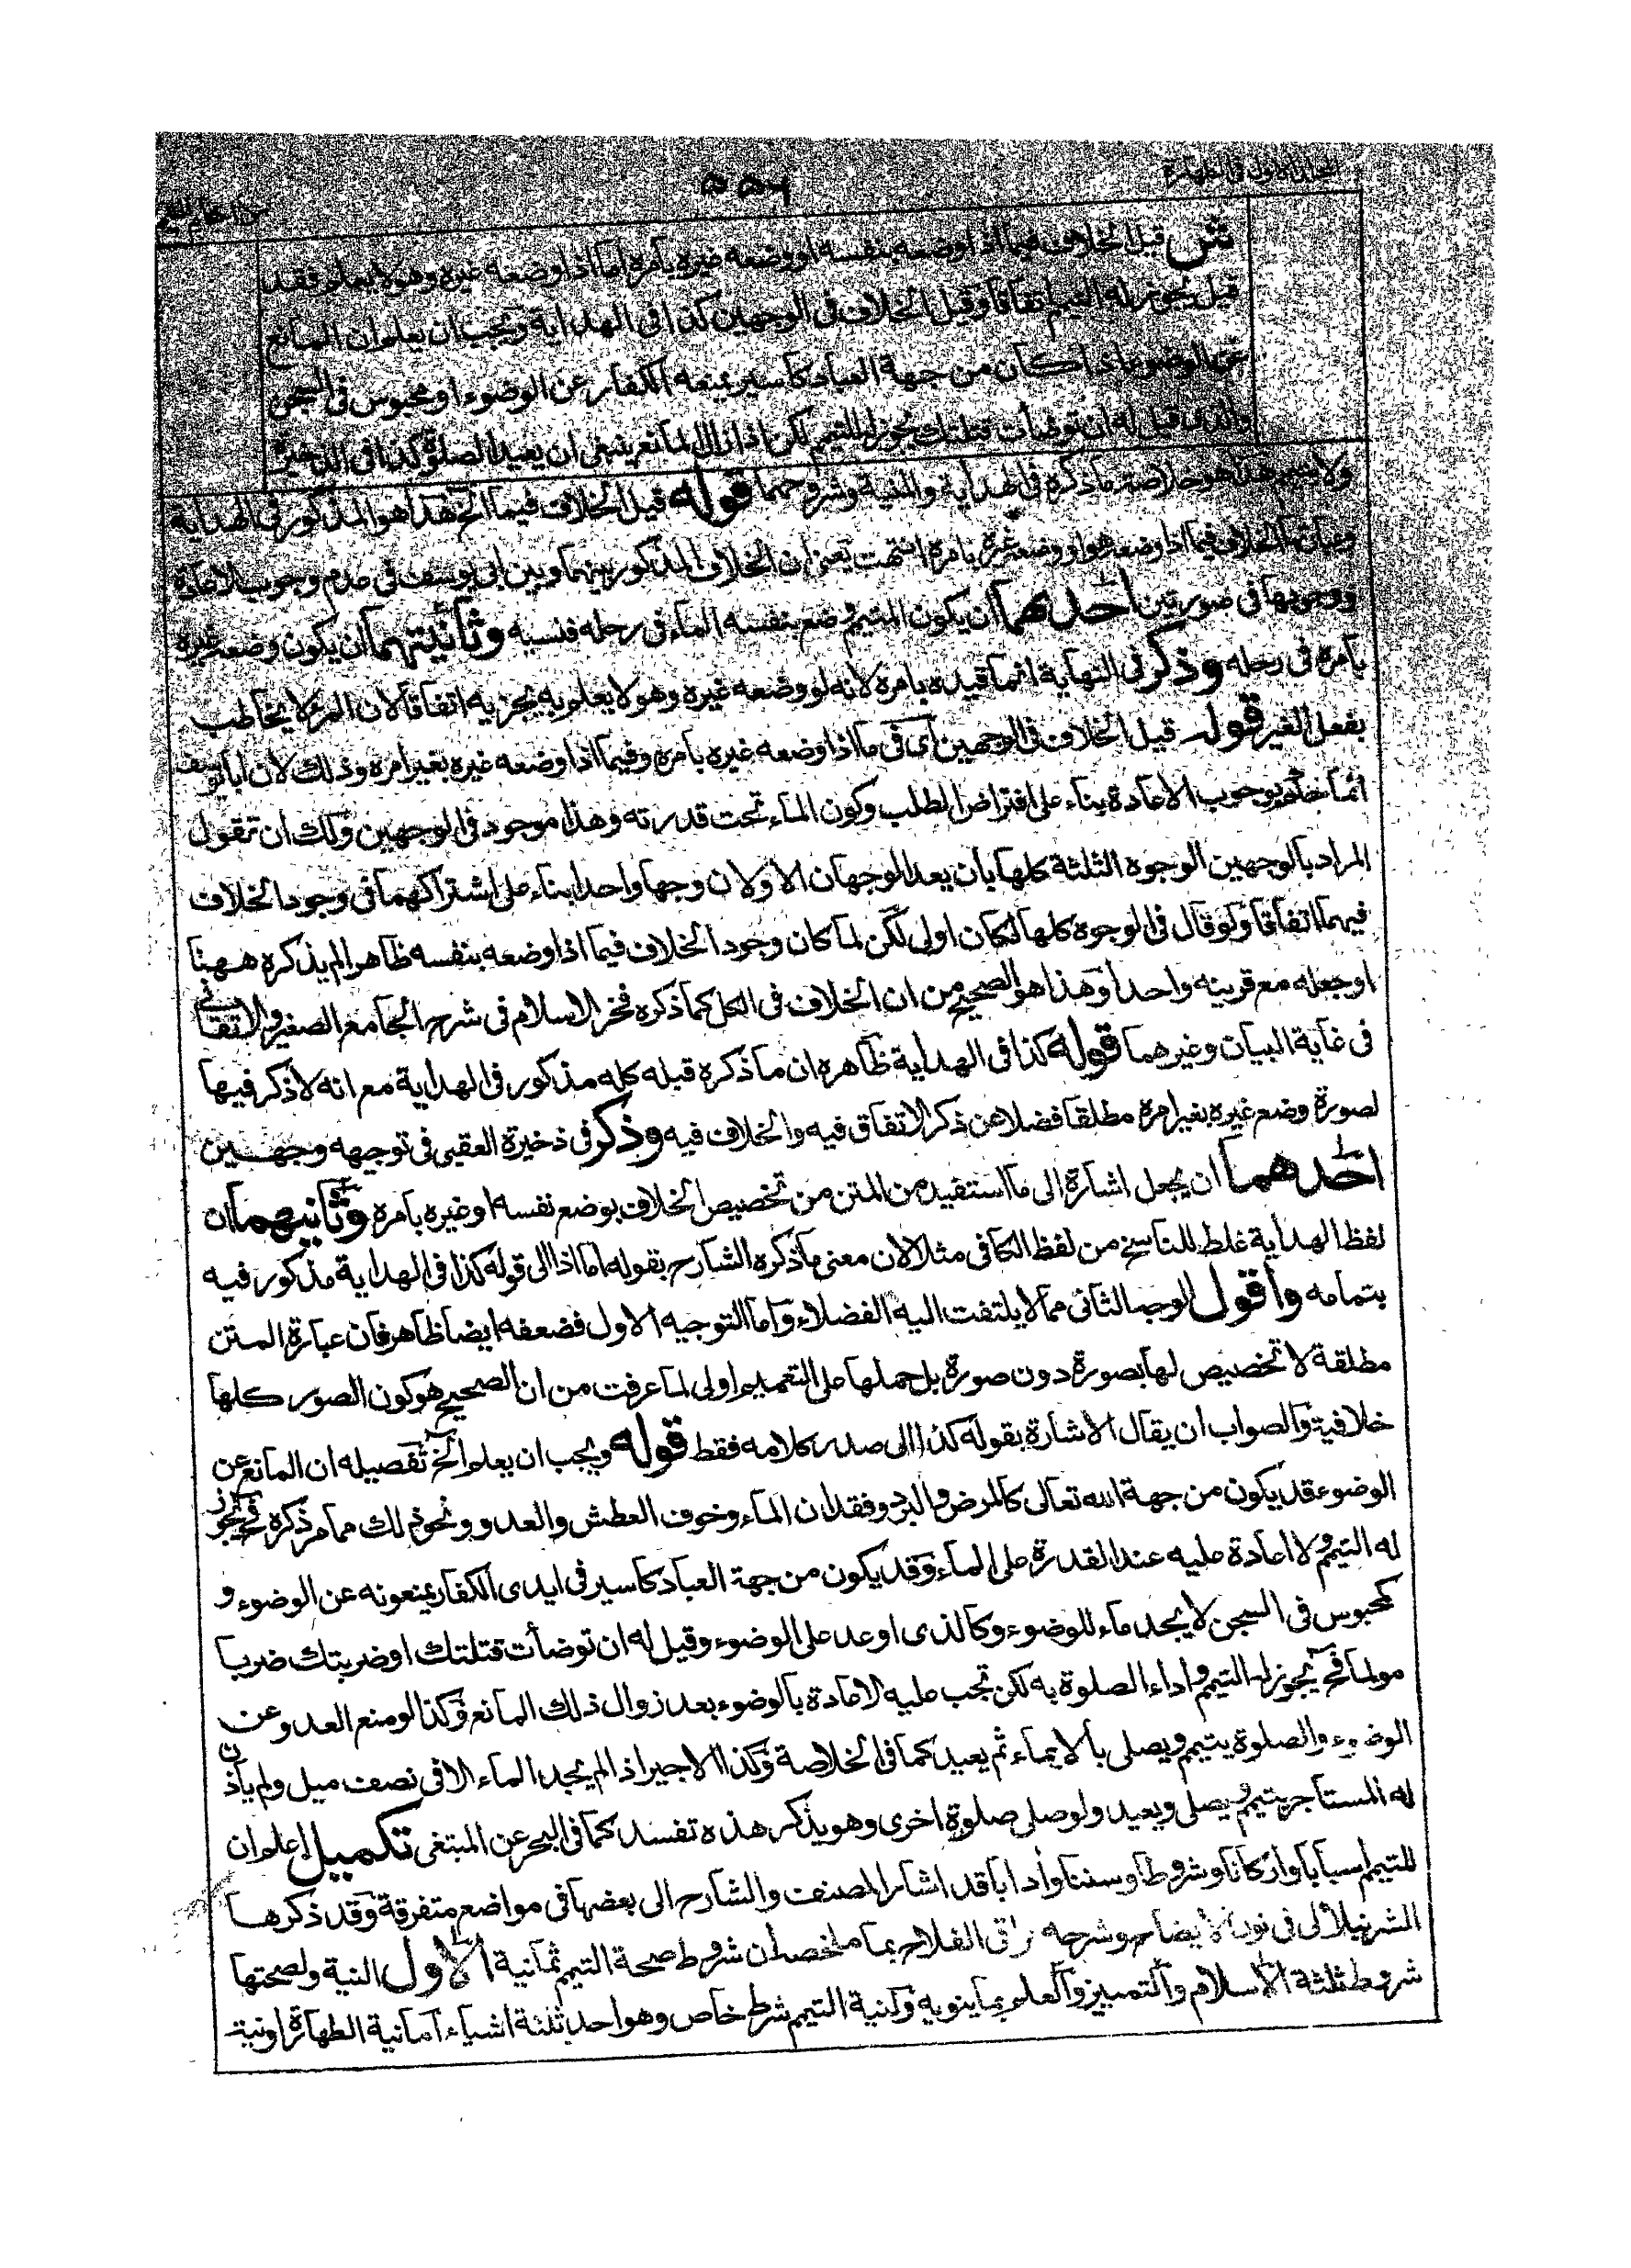 المجلد الاول فى الطهارة
٥٥٦
ش قيل الخلاف فيما اذا وضعه بنفسه او وضعه غيره بامره اما اذا وضعه غيره وهو لا يعلم فقد
قيل يجوز له التيمم اتفاقا وقيل الخلاف فى الوجهين كذا فى الهداية ويجب ان يعلم ان المانع
عن الوضوء اذا كان من جهة العباد كاسير يمنعه الكفار عن الوضوء او محبوس فى السجن
والذى قيل له ان توضأت قتلتك يجوز له التيمم لكن اذا زال المانع ينبغى ان يعيد الصلوة كذا فى الذخيرة
هذا هو خلاصة ما ذكره فى الهداية والبناية وشروحهما قوله قيل الخلاف فيما الخ هذا هو المذكور فى الهداية
وعبارتها الخلاف فيما اذا وضعه هو او وضعه غيره بامره انتهت يعنى ان الخلاف المذكور بينهما وبين ابى يوسف فى عدم وجوب الاعادة
ووجوبها فى صورتين احدهما ان يكون المتيمم وضع بنفسه الماء فى رحله فنسيه وثانيتهما ان يكون وضعه غيره
بامره فى رحله وذكر فى النهاية انما قيده بامره لانه لو وضعه غيره وهو لا يعلم به يجزيه اتفاقا لان المرء لا يخاطب
بفعل الغير قوله قيل الخلاف فى الوجهين اى فى ما اذا وضعه غيره بامره وفيما اذا وضعه غيره بغير امره وذلك لان ابا يوسف
انما حكم بوجوب الاعادة بناء على افتراض الطلب وكون الماء تحت قدرته وهذا موجود فى الوجهين ولك ان تقول
المراد بالوجهين الوجوه الثلثة كلها بان يعد الوجهان الاولان وجها واحدا بناء على اشتراكهما فى وجود الخلاف
فيهما اتفاقا ولو قال فى الوجوه كلها لكان اولى لكن لما كان وجود الخلاف فيما اذا وضعه بنفسه ظاهرا لم يذكره ههنا
او جعله مع قرينه واحدا وهذا هو الصحيح من ان الخلاف فى الكل كما ذكره فخر الاسلام فى شرح الجامع الصغير والاتقانى
فى غاية البيان وغيرهما قوله كذا فى الهداية ظاهره ان ما ذكره قبله كله مذكور فى الهداية مع انه لا ذكر فيها
لصورة وضع غيره بغير امره مطلقا فضلا عن ذكر الاتفاق فيه والخلاف فيه وذكر فى ذخيرة العقبى فى توجيهه وجهين
احدهما ان يجعل اشارة الى ما استفيد من المتن من تخصيص الخلاف بوضع نفسه او غيره بامره وثانيهما ان
لفظ الهداية غلط للناسخ من لفظ الكافى مثلا لان معنى ما ذكره الشارح بقوله اما اذا الى قوله كذا فى الهداية مذكور فيه
بتمامه واقول الوجه الثانى مما لا يلتفت اليه الفضلاء واما التوجيه الاول فضعفه ايضا ظاهر فان عبارة المتن
مطلقة لا تخصيص لها بصورة دون صورة بل حملها على التعميم اولى لما عرفت من ان الصحيح هو كون الصور كلها
خلافية والصواب ان يقال الاشارة بقوله كذا الى صدر كلامه فقط قوله ويجب ان يعلم الخ تفصيله ان المانع عن
الوضوء قد يكون من جهة الله تعالى كالمرض والبرد وفقدان الماء وخوف العطش والعدو ونحو ذلك مما مر ذكره فح يجوز
له التيمم ولا اعادة عليه عند القدرة على الماء وقد يكون من جهة العباد كاسير فى ايدى الكفار يمنعونه عن الوضوء و
كمحبوس فى السجن لا يجد ماء للوضوء وكالذى اوعد على الوضوء وقيل له ان توضأت قتلتك او ضربتك ضربا
مولما فح يجوز له التيمم واداء الصلوة به لكن تجب عليه الاعادة بالوضوء بعد زوال ذلك المانع وكذا لو منع العدو عن
الوضوء والصلوة يتيمم ويصلى بالايماء ثم يعيد كما فى الخلاصة وكذا الاجير اذا لم يجد الماء الا فى نصف ميل ولم ياذن
له المستاجر يتيمم ويصلى ويعيد ولو صلى صلوة اخرى وهو يذكر هذه تفسد كما فى البحر عن المبتغى تكميل اعلم ان
للتيمم اسبابا واركانا وشروطا وسننا وادابا قد اشار المصنف والشارح الى بعضها فى مواضع متفرقة وقد ذكرها
الشرنبلالى فى نور الايضاح وشرحه مراقى الفلاح بما ملخصه ان شروط صحة التيمم ثمانية الاول النية ولصحتها
شروط ثلثة الاسلام والتمييز والعلم بما ينويه ولنية التيمم شرط خاص وهو احد ثلثة اشياء اما نية الطهارة او نية